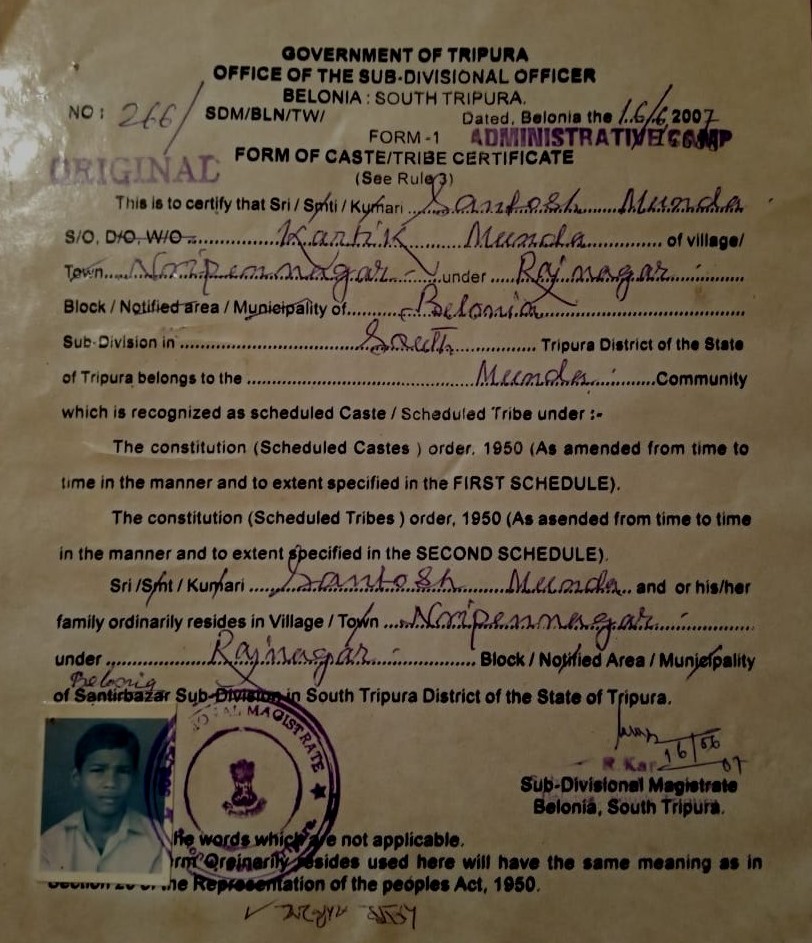 GOVERNMENT OF TRIPURA
OFFICE OF THE SUB-DIVISIONAL OFFICER
BELONIA : SOUTH TRIPURA.
NO : 266/ SDM/BLN/TW/ Dated, Belonia the 16/6/2007
FORM -1 ADMINISTRATIVE CAMP
ORIGINAL FORM OF CASTE/TRIBE CERTIFICATE
(See Rule 3)
This is to certify that Sri / Smti / Kumari ..... Santosh Munda
S/O, D/O, W/O ..... Kartik Munda ..... of village/
Town.... Nripennagar - under .. Rajnagar
Block / Notified area / Municipality of..... Belonia
Sub-Division in ..... South ..... Tripura District of the State
of Tripura belongs to the ..... Munda ..... Community
which is recognized as scheduled Caste / Scheduled Tribe under :-
The constitution (Scheduled Castes ) order, 1950 (As amended from time to
time in the manner and to extent specified in the FIRST SCHEDULE).
The constitution (Scheduled Tribes ) order, 1950 (As asended from time to time
in the manner and to extent specified in the SECOND SCHEDULE).
Sri /Smt / Kumari ..... Santosh Munda .. and or his/her
family ordinarily resides in Village / Town .... Nripennagar
under ..... Rajnagar ..... Block / Notified Area / Municipality
Belonia
of Santirbazar Sub-Division in South Tripura District of the State of Tripura.
MAGISTRATE
16/06
07
R. Kar
Sub-Divisional Magistrate
Belonia, South Tripura.
words which are not applicable.
Oreinarily resides used here will have the same meaning as in
Section 20 of the Representation of the peoples Act, 1950.